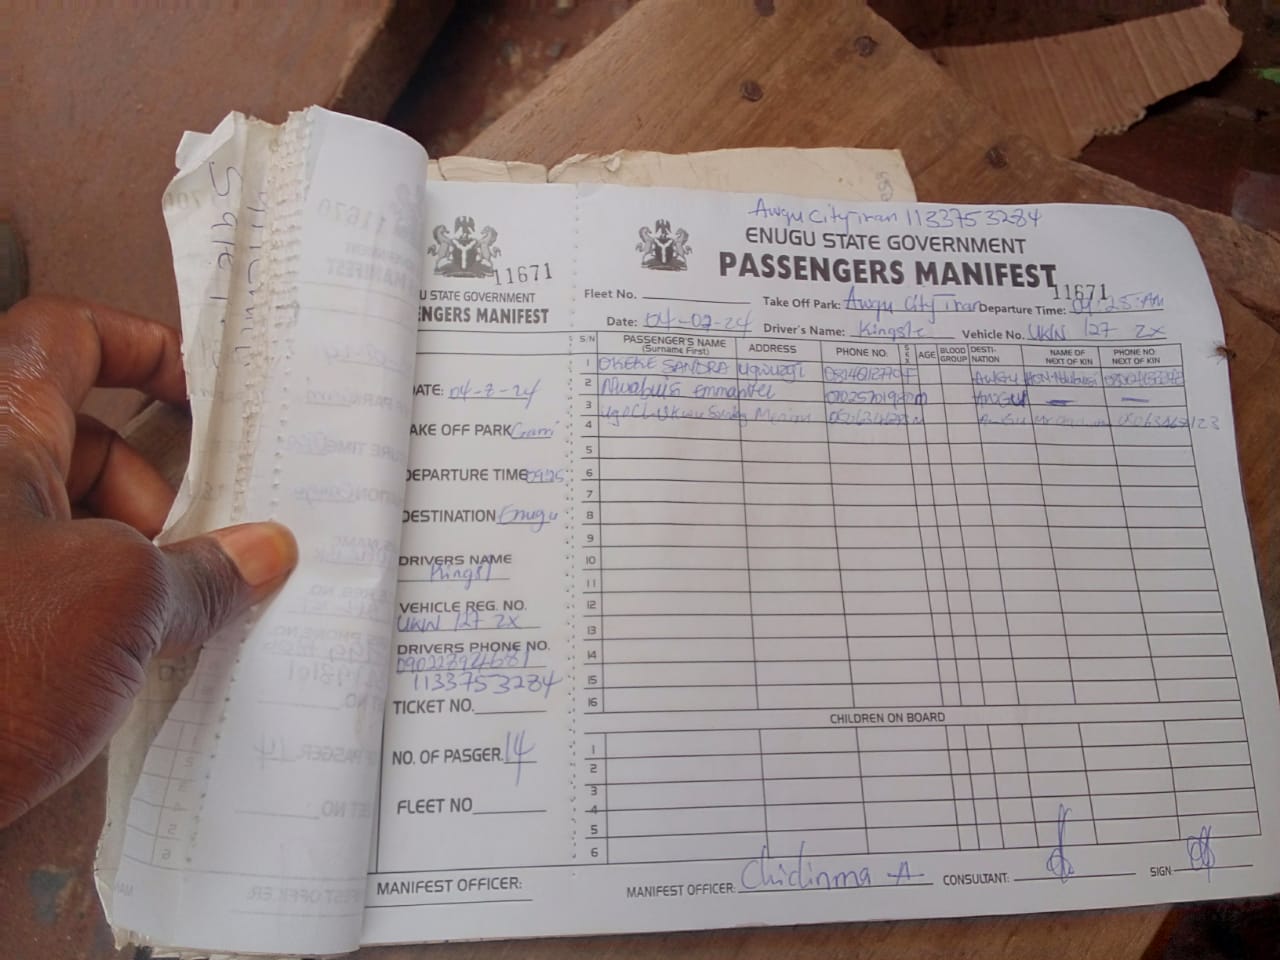 11671
U STATE GOVERNMENT
ENGERS MANIFEST
DATE: 04-8-24
AKE OFF PARK Garri
DEPARTURE TIME 09:25
DESTINATION Enugu
DRIVERS NAME
Kingsl
VEHICLE REG. NO.
UKW 127 ZX
DRIVERS PHONE NO.
1133753284
TICKET NO.
NO. OF PASGER. 14
FLEET NO
MANIFEST OFFICER:
Awgu City Tran 1133753284
ENUGU STATE GOVERNMENT
PASSENGERS MANIFEST
11671
Fleet No. Take Off Park: Awgu City Tran Departure Time: 09:25 AM
Date: Driver's Name: Kingsle Vehicle No. UKW 127 ZX
S/N PASSENGER'S NAME (Surname First) ADDRESS PHONE NO. SEX AGE BLOOD GROUP DESTI-NATION NAME OF NEXT OF KIN PHONE NO. NEXT OF KIN
1 OKEKE SANDRA Ugwuogi AWGU
2 Nwabuis emmanuel AWGU
3
4
5
6
7
8
9
10
11
12
13
14
15
16
CHILDREN ON BOARD
1
2
3
4
5
6
MANIFEST OFFICER: Chidinma A CONSULTANT: SIGN